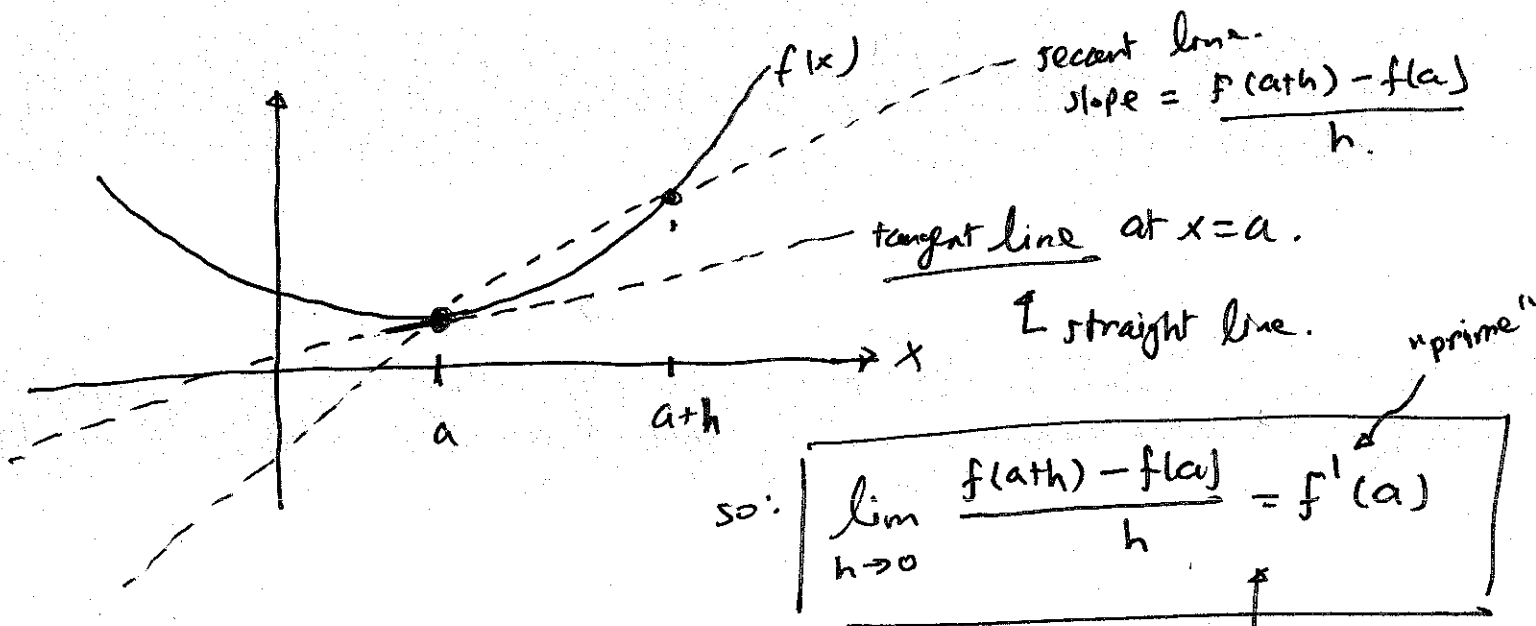 f(x)
secant line.
slope = f(a+h) - f(a) / h.
tangent line at x=a.
straight line.
"prime"
x
a
a+h
so: lim h→0 f(a+h) - f(a) / h = f'(a)